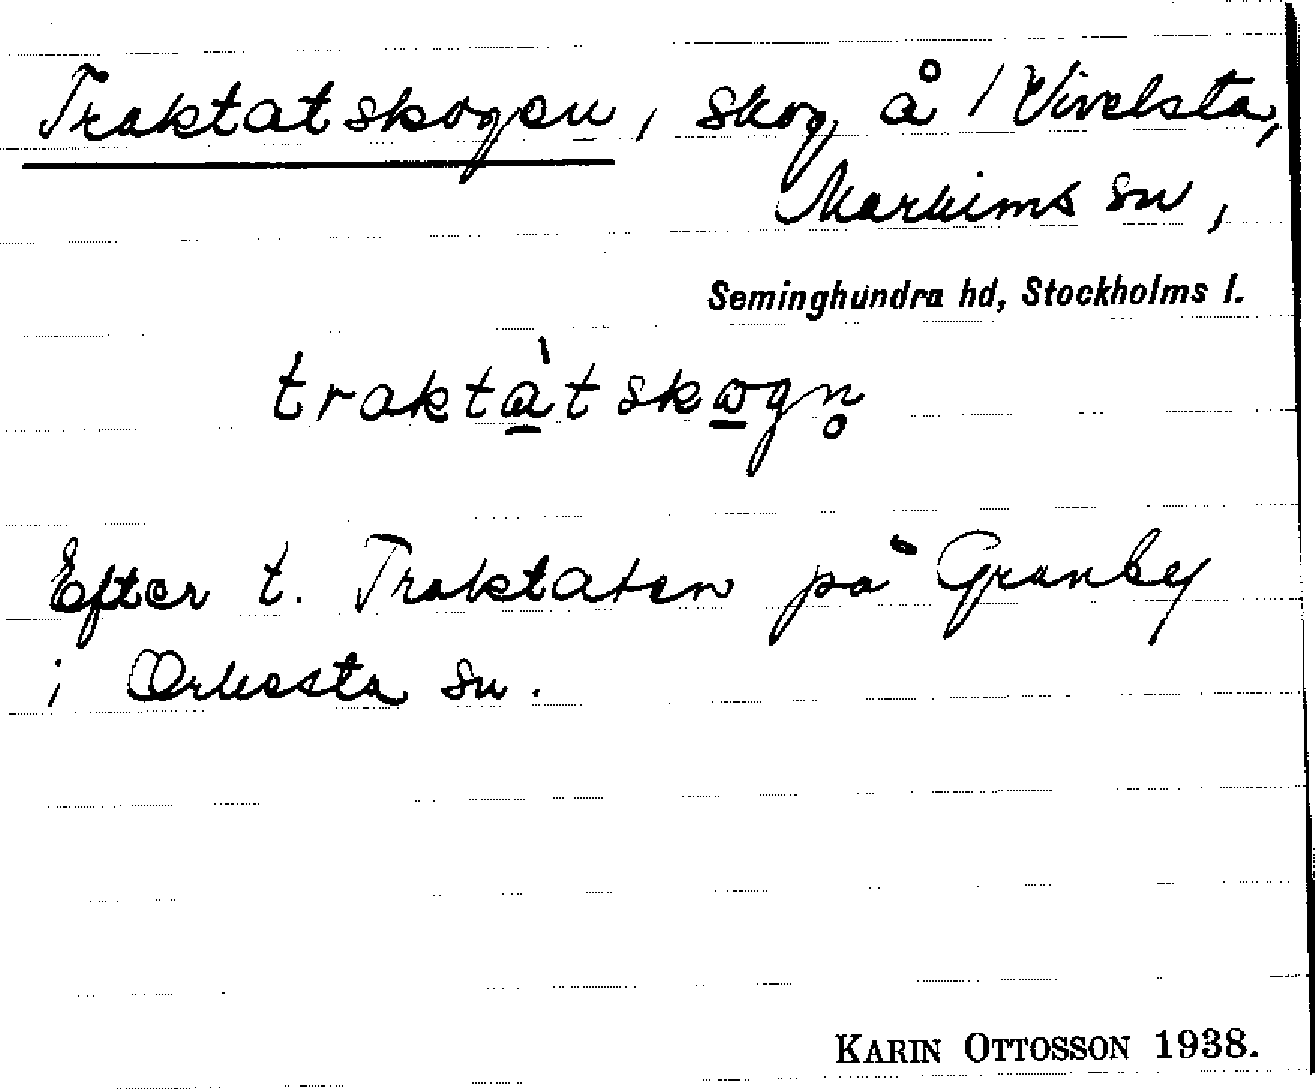 Traktatskogen, skog, å / Vivelsta,
Markims sn,
Seminghundra hd, Stockholms l.
traktà̲tsko̲gn̥
Efter t. Traktaten på Granby
i Orkesta sn.
KARIN OTTOSSON 1938.